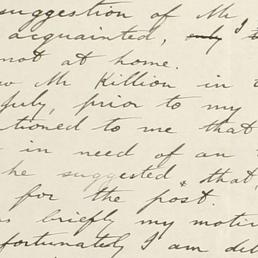 suggestion of Mr
acquainted, only I
not at home.
Mr Killion in
prior to my
tioned to me that
in need of an
he suggested that
for the post.
briefly my moti
fortunately I am de